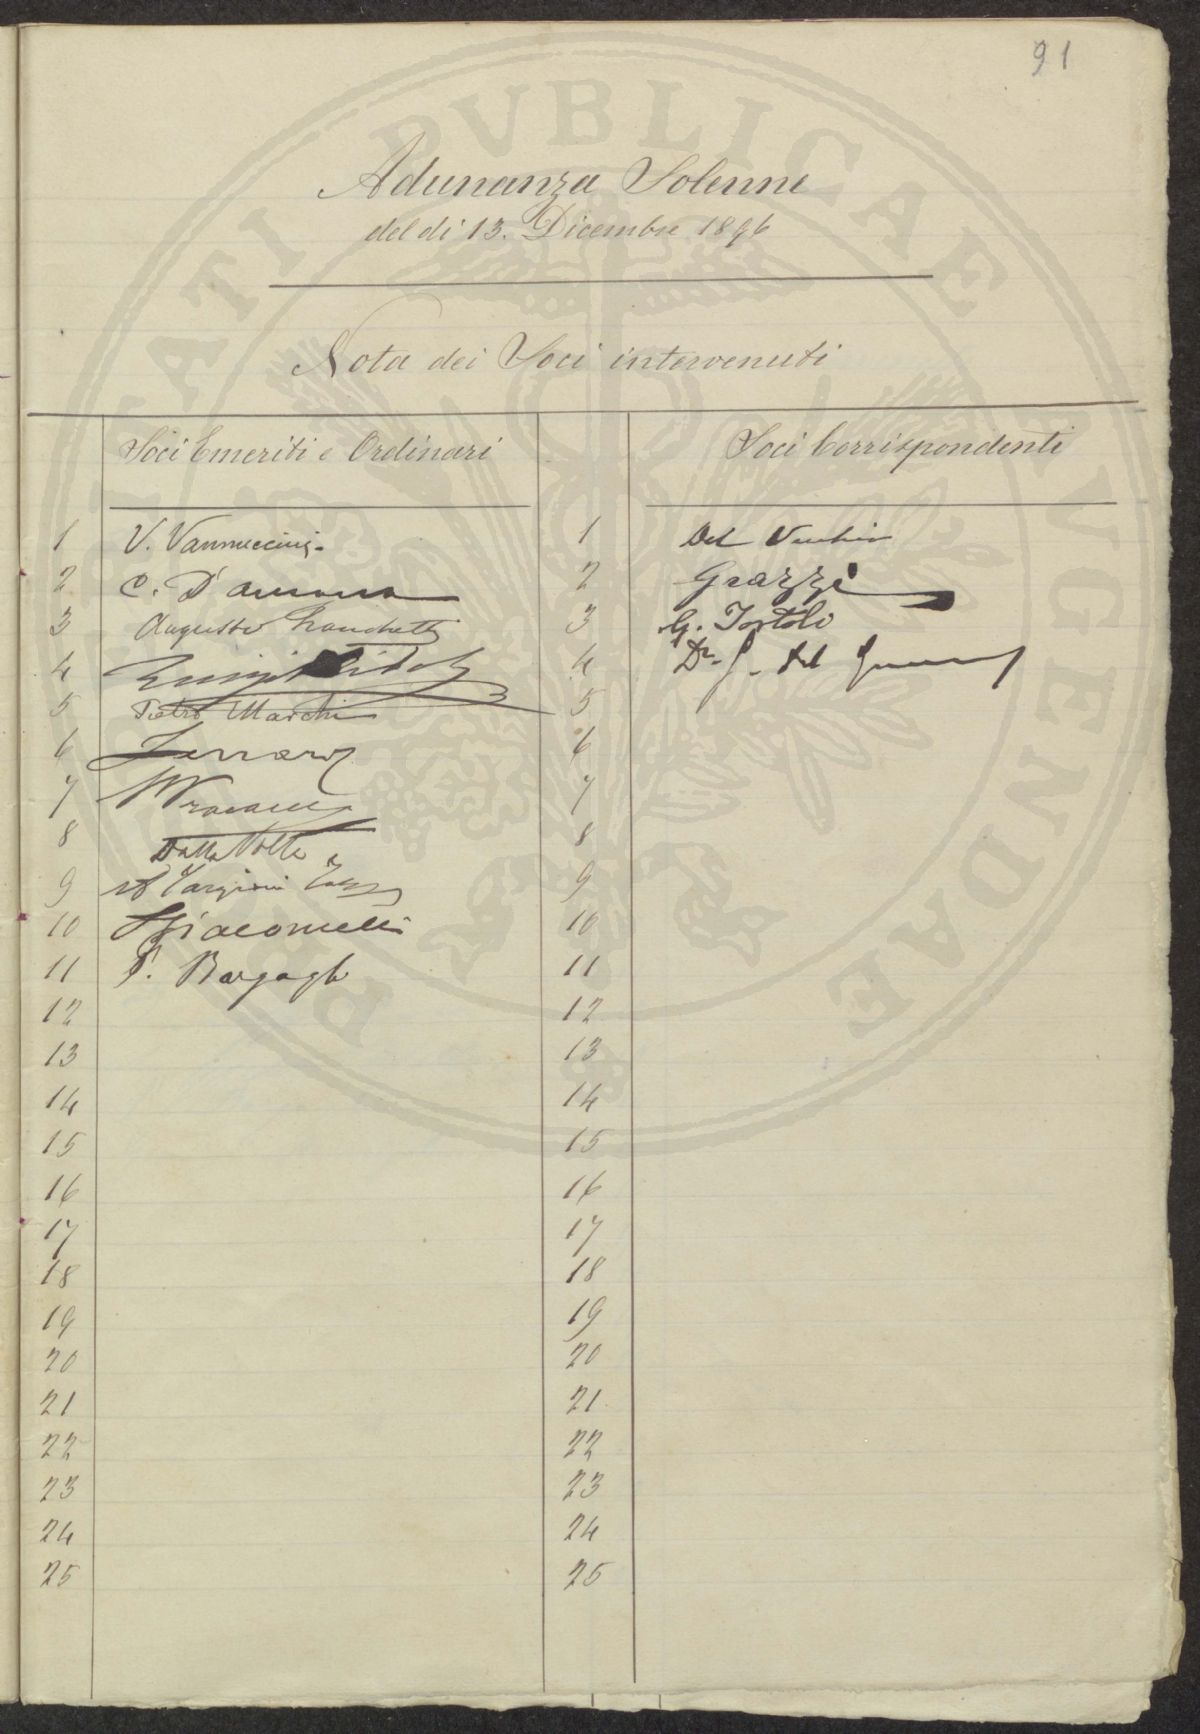 91
PROSPERITATI PVBLICAE AVGENDAE
Adunanza Solenne
del dì 13. Dicembre 1896
Nota dei Soci intervenuti
Soci Emeriti e Ordinari
Soci Corrispondenti
1 V. Vannuccini
1 Del Vecchio
2 C. D'Ancona
2 Grazzi
3 Augusto Franchetti
3 G. Tortoli
4 Luigi Ridolfi
4 Dr. G. Del
5 Pietro Marchi
5
6
6
7
7
8 Dalla Volta
8
9 A Targioni Tozz
9
10 Giacomelli
10
11 P. Bargagli
11
12
12
13
13
14
14
15
15
16
16
17
17
18
18
19
19
20
20
21
21
22
22
23
23
24
24
25
25